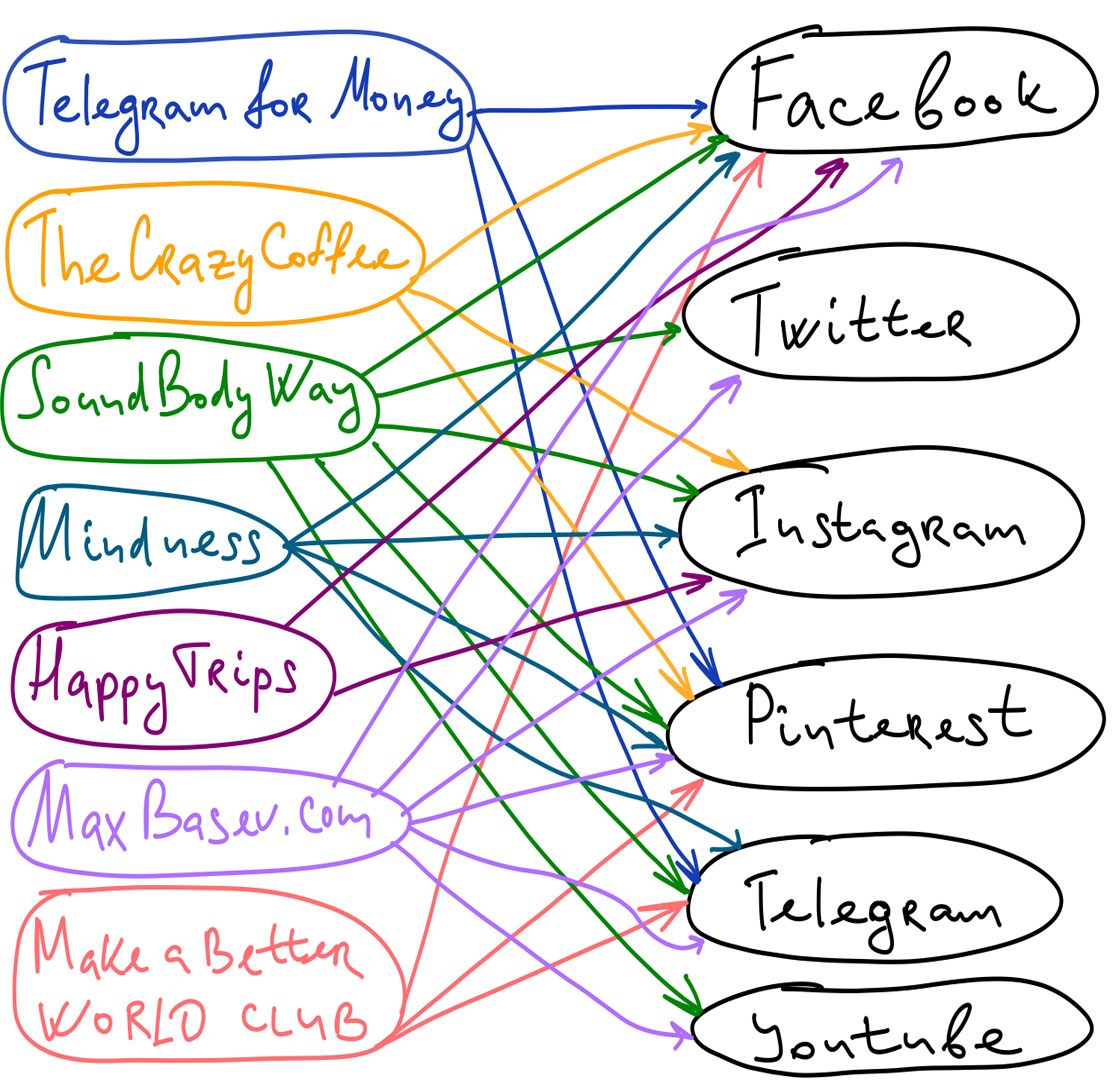 Telegram for Money
The Crazy Coffee
Sound Body Way
Mindness
Happy Trips
Max Basev.com
Make a Better
WORLD CLUB
Facebook
Twitter
Instagram
Pinterest
Telegram
Youtube